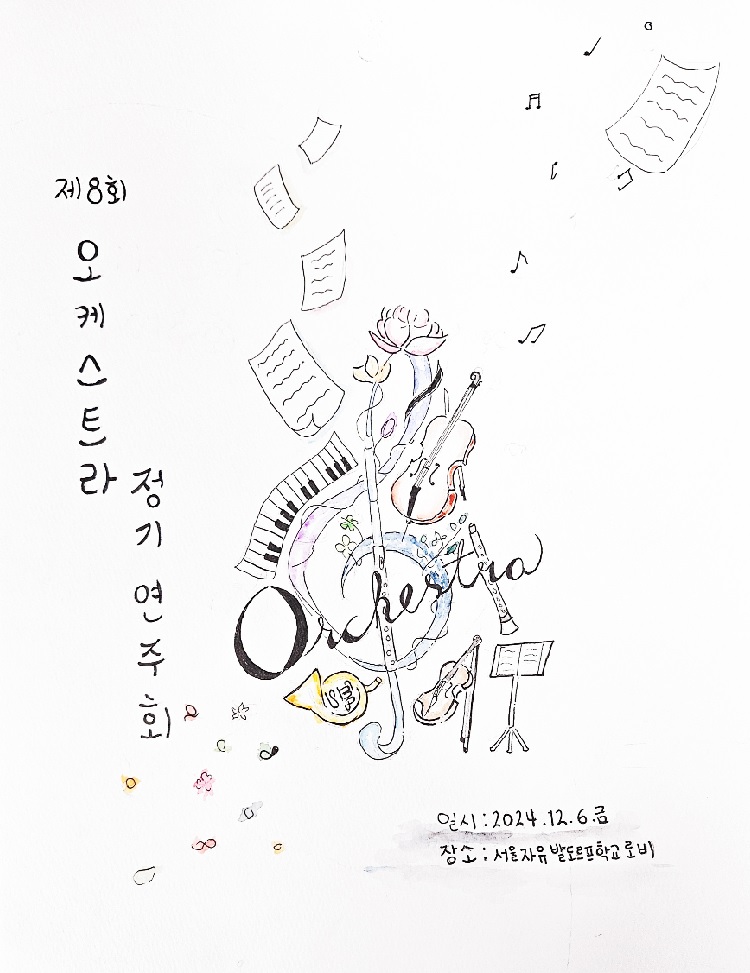 제8회
오케스트라
정기 연주회
Orchestra
일시 : 2024.12.6.금
장소 : 서울자유발도르프학교 로비